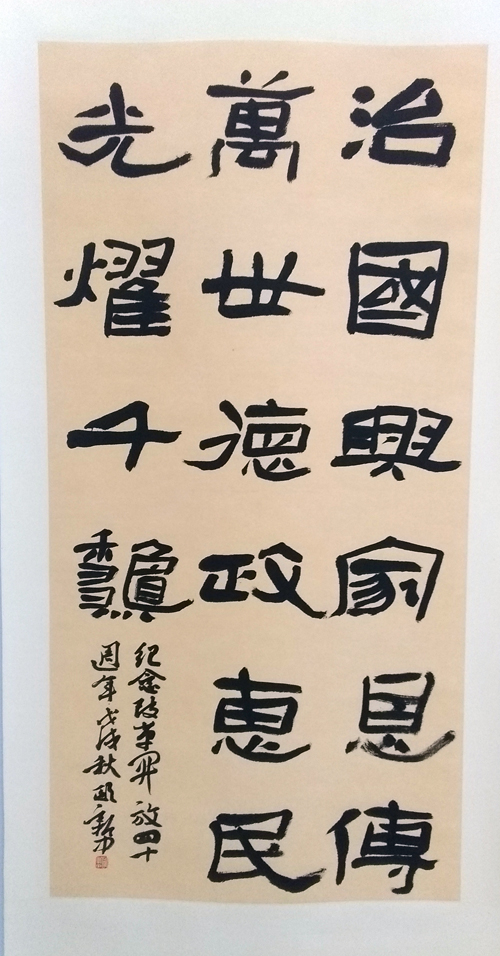 治國興家恩傳
萬世德政惠民
光耀千龝
紀念改革開放四十
週年戊戌秋